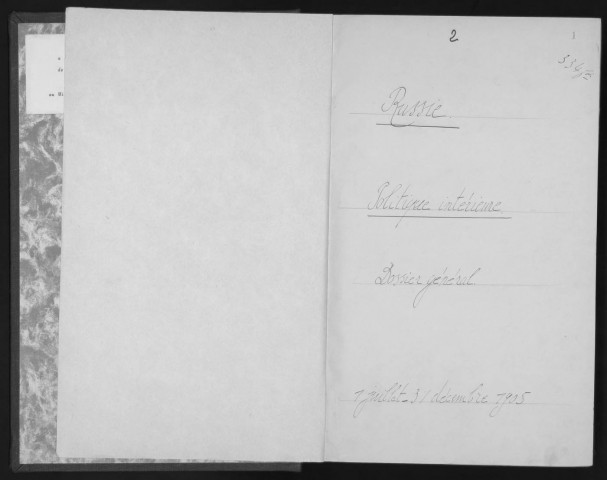 2
Russie
Politique intérieure
Dossier général
1 Juillet - 31 décembre 1905